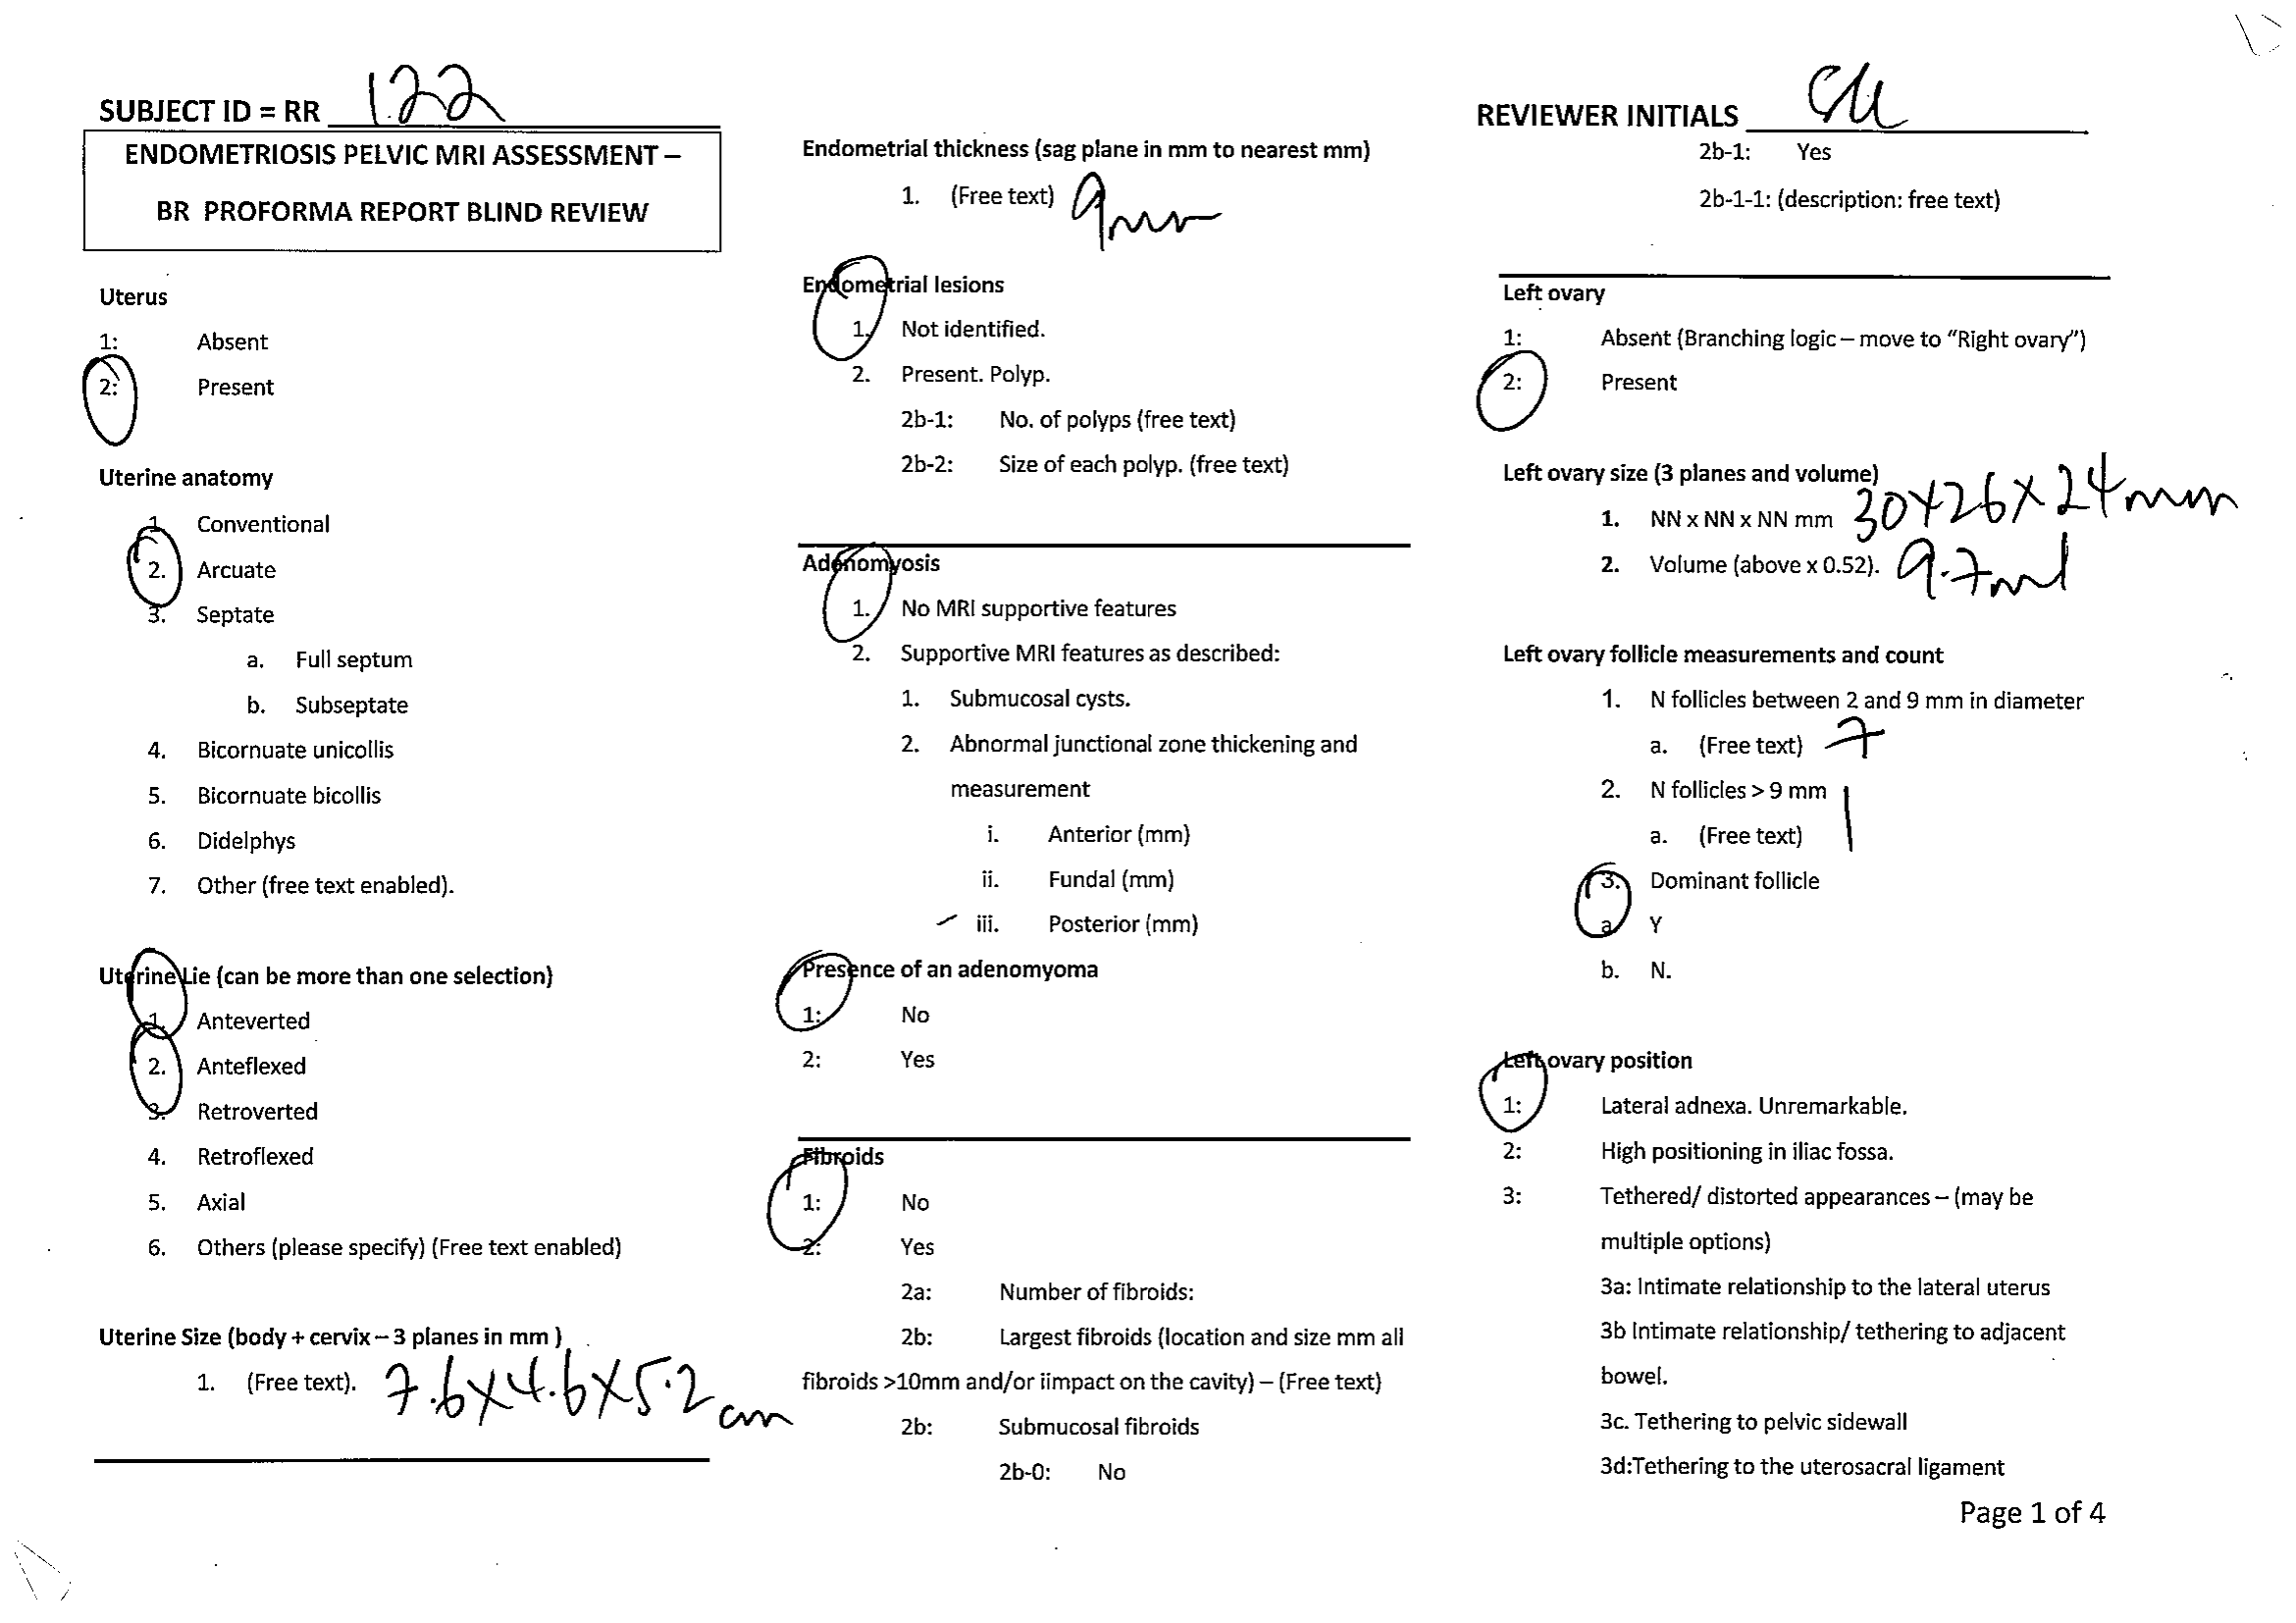 SUBJECT ID = RR 122
ENDOMETRIOSIS PELVIC MRI ASSESSMENT –
BR PROFORMA REPORT BLIND REVIEW
Uterus
1: Absent
2: Present
Uterine anatomy
1. Conventional
2. Arcuate
3. Septate
a. Full septum
b. Subseptate
4. Bicornuate unicollis
5. Bicornuate bicollis
6. Didelphys
7. Other (free text enabled).
Uterine Lie (can be more than one selection)
1. Anteverted
2. Anteflexed
3. Retroverted
4. Retroflexed
5. Axial
6. Others (please specify) (Free text enabled)
Uterine Size (body + cervix – 3 planes in mm )
1. (Free text). 7.6x4.6x5.2 cm
Endometrial thickness (sag plane in mm to nearest mm)
1. (Free text) 9mm
Endometrial lesions
1. Not identified.
2. Present. Polyp.
2b-1: No. of polyps (free text)
2b-2: Size of each polyp. (free text)
Adenomyosis
1. No MRI supportive features
2. Supportive MRI features as described:
1. Submucosal cysts.
2. Abnormal junctional zone thickening and
measurement
i. Anterior (mm)
ii. Fundal (mm)
iii. Posterior (mm)
Presence of an adenomyoma
1: No
2: Yes
Fibroids
1: No
2: Yes
2a: Number of fibroids:
2b: Largest fibroids (location and size mm all
fibroids >10mm and/or iimpact on the cavity) – (Free text)
2b: Submucosal fibroids
2b-0: No
REVIEWER INITIALS
2b-1: Yes
2b-1-1: (description: free text)
Left ovary
1: Absent (Branching logic – move to “Right ovary”)
2: Present
Left ovary size (3 planes and volume)
1. NN x NN x NN mm 30x26x24mm
2. Volume (above x 0.52). 9.7ml
Left ovary follicle measurements and count
1. N follicles between 2 and 9 mm in diameter
a. (Free text) 7
2. N follicles > 9 mm
a. (Free text) 1
3. Dominant follicle
a Y
b. N.
Left ovary position
1: Lateral adnexa. Unremarkable.
2: High positioning in iliac fossa.
3: Tethered/ distorted appearances – (may be
multiple options)
3a: Intimate relationship to the lateral uterus
3b Intimate relationship/ tethering to adjacent
bowel.
3c. Tethering to pelvic sidewall
3d:Tethering to the uterosacral ligament
Page 1 of 4